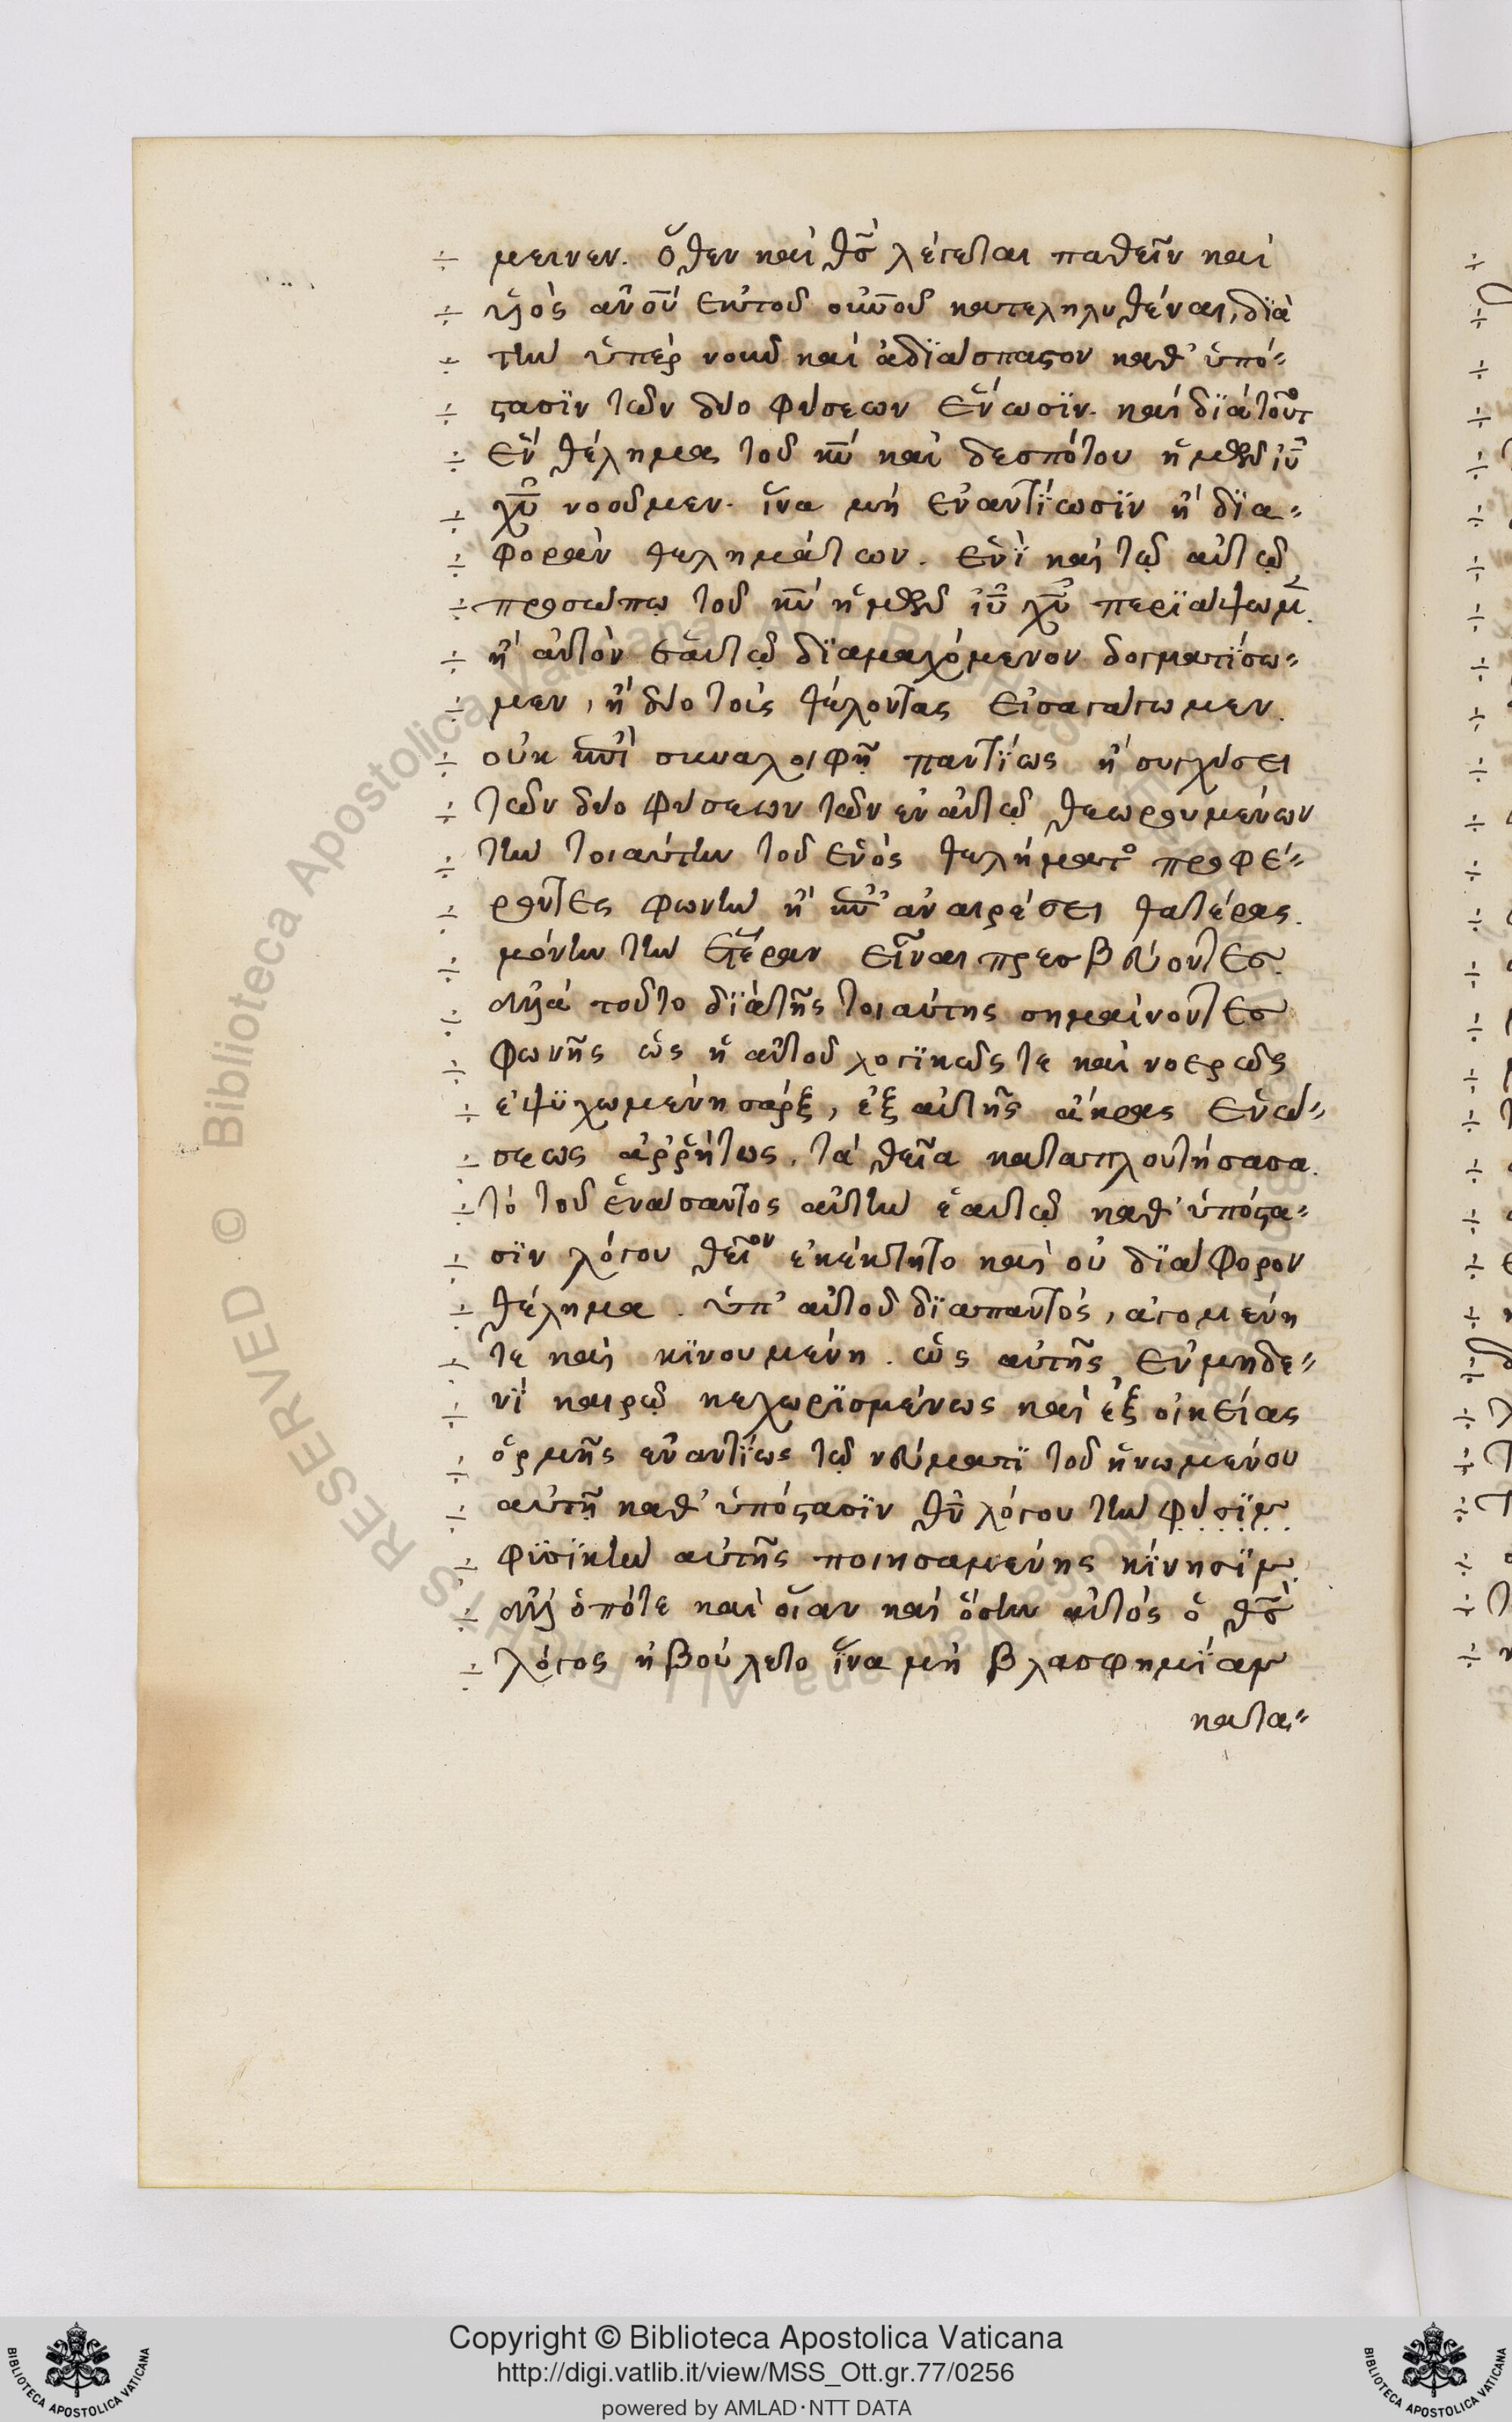 μεινεν. ὅθεν καὶ θς̅ λέγεται παθεῖν καὶ
υἱὸς ἀνου̅ ἐκ τοῦ ουνου̅ κατεληλυθέναι, δϊὰ
τὴν ὑπὲρ νοῦν καὶ ἀδϊάσπαστον καθ' ὑπό=
στασϊν τῶν δύο φύσεων ἕνωσϊν. καὶ δϊὰ τοῦτ
ἓν θέλημα τοῦ κυ̅ καὶ δεσπότου ἡμῶν ἰυ̅
χυ̅ νοοῦμεν. ἵνα μὴ ἐναντΐωσϊν ἢ δϊα=
φορὰν θελημάτων. ἑνῒ καὶ τῷ αὐτῷ
προσώπῳ τοῦ κυ̅ ἡμῶν ἰυ̅ χυ̅ περϊάψωμ̅.
ἢ αὐτὸν ἑαυτῷ δϊαμαχόμενον δογματΐσω=
μεν, ἢ δύο τοὺς θέλοντας εἰσαγάγωμεν.
οὐκ ἐπῒ συναλοιφῇ παντΐως ἢ συγχύσει
τῶν δύο φύσεων τῶν ἐν αὐτῷ θεωρουμένων
τὴν τοιαύτην τοῦ ἑνὸς θελήματο προφέ=
ροντες φωνὴν ἢ ἐπ' ἀναιρέσει θατέρας.
μόνην τὴν ἑτέραν εἶναι πρεσβεύοντες.
ἀλλὰ τοῦτο δϊὰ τῆς τοιαύτης σημαίνοντες
φωνῆς ὡς ἡ αὐτοῦ λογϊκῶς τε καὶ νοερῶς
ἐψϋχωμένη σάρξ, ἐξ αὐτῆς ἄκρας ἑνώ=
σεως ἀῤῥήτως. τὰ θεῖα καταπλουτήσασα.
τὸ τοῦ ἑνώσαντος αὐτὴν ἑαυτῷ καθ' ὑπόστα=
σϊν λόγου θεῖον ἐκέκτητο καὶ οὐ δϊάφορον
θέλημα. ὑπ' αὐτοῦ δϊαπαντὸς, ἀγομένη
τε καὶ κϊνουμένη. ὡς αὐτῆς, ἐν μηδε=
νὶ καιρῷ κεχωρϊσμένως καὶ ἐξ οἰκείας
ὁρμῆς ἐναντΐως τῷ νεύματϊ τοῦ ἡνωμένου
αὐτῇ καθ' ὑπόστασϊν θυ̅ λόγου τὴν φύσϊν
φϊσϊκὴν αὐτῆς ποιησαμένης κΐνησϊν.
ἀλλ' ὁπότε καὶ οἵαν καὶ ὅσην αὐτὸς ὁ θς̅
λόγος ἠβούλετο ἵνα μὴ βλασφημΐαν
κατα=
Copyright © Biblioteca Apostolica Vaticana
http://digi.vatlib.it/view/MSS_Ott.gr.77/0256
powered by AMLAD·NTT DATA